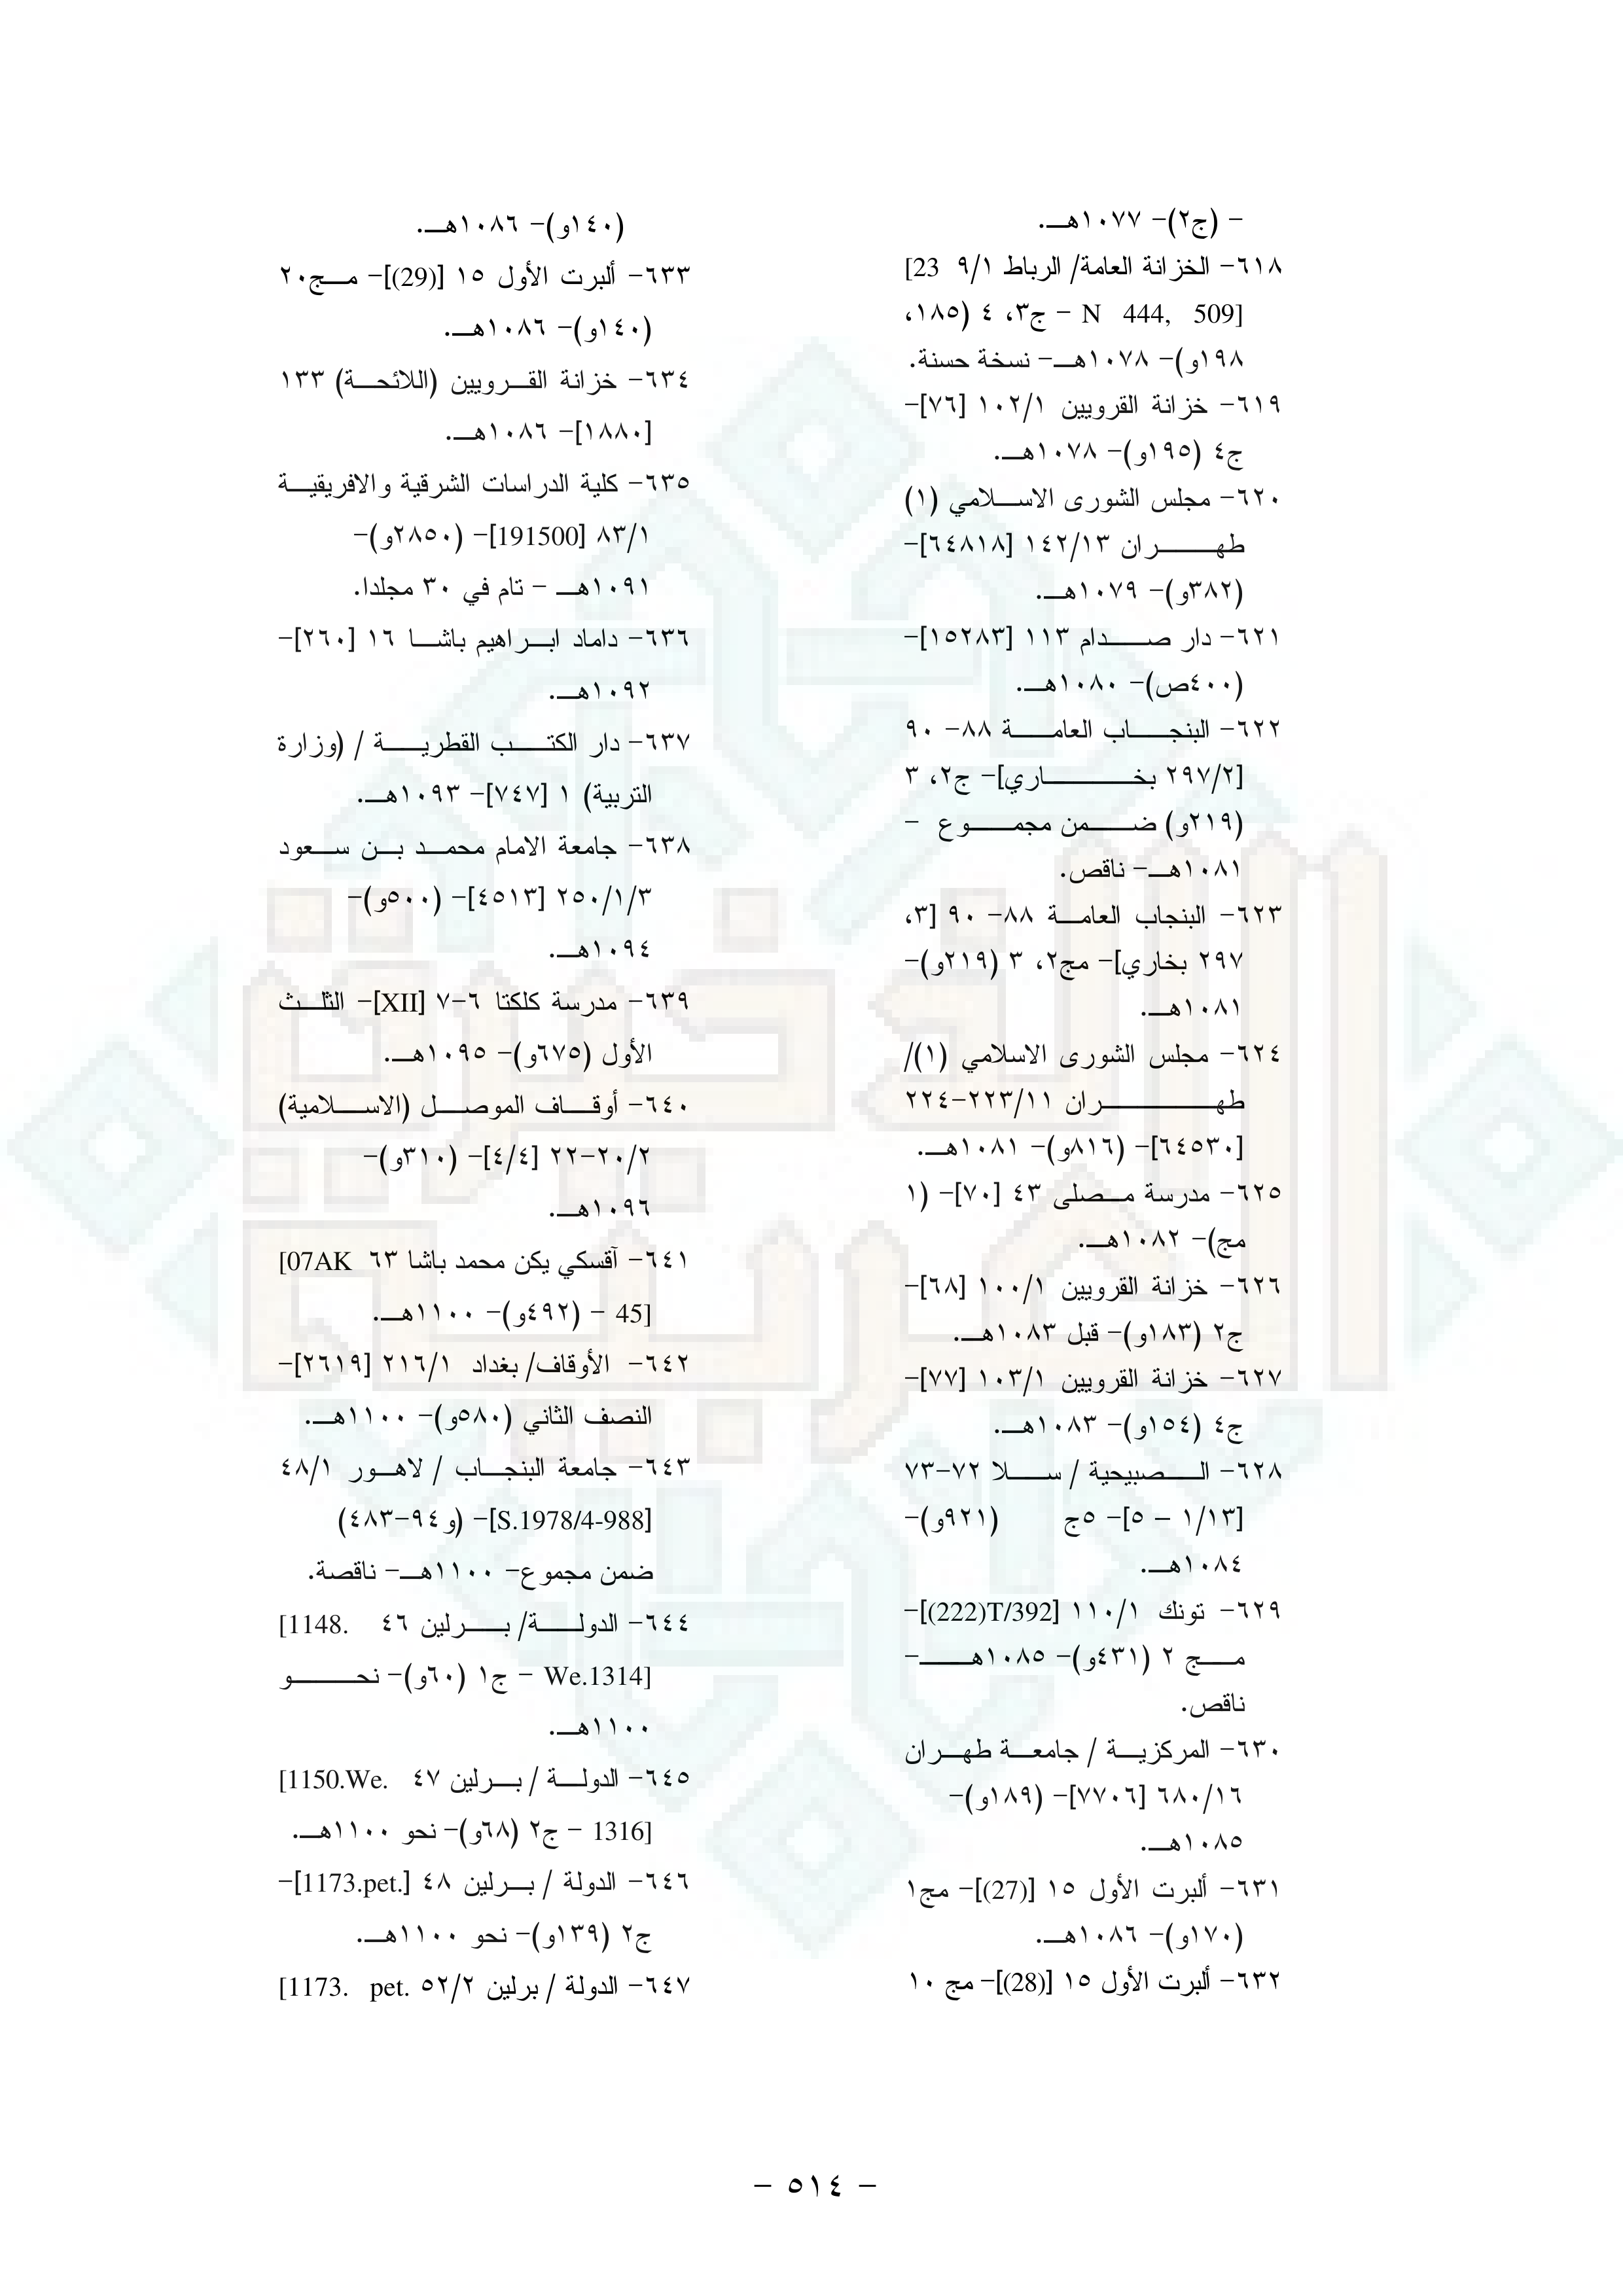 - (ج٢)- ١٠٧٧هـ.
٦١٨- الخزانة العامة/ الرباط ٩/١ [23
N 444, 509] - ج٣، ٤ (١٨٥،
١٩٨و)- ١٠٧٨هـ- نسخة حسنة.
٦١٩- خزانة القرويين ١٠٢/١ [٧٦]-
ج٤ (١٩٥و)- ١٠٧٨هـ.
٦٢٠- مجلس الشورى الاسلامي (١)
طهران ١٤٢/١٣ [٦٤٨١٨]-
(٣٨٢و)- ١٠٧٩هـ.
٦٢١- دار صدام ١١٣ [١٥٢٨٣]-
(٤٠٠ص)- ١٠٨٠هـ.
٦٢٢- البنجاب العامة ٨٨- ٩٠
[٢٩٧/٢ بخاري]- ج٢، ٣
(٢١٩و) ضمن مجموع -
١٠٨١هـ- ناقص.
٦٢٣- البنجاب العامة ٨٨- ٩٠ [٣،
٢٩٧ بخاري]- مج٢، ٣ (٢١٩و)-
١٠٨١هـ.
٦٢٤- مجلس الشورى الاسلامي (١)/
طهران ٢٢٣/١١-٢٢٤
[٦٤٥٣٠]- (٨١٦و)- ١٠٨١هـ.
٦٢٥- مدرسة مصلى ٤٣ [٧٠]- (١
مج)- ١٠٨٢هـ.
٦٢٦- خزانة القرويين ١٠٠/١ [٦٨]-
ج٢ (١٨٣و)- قبل ١٠٨٣هـ.
٦٢٧- خزانة القرويين ١٠٣/١ [٧٧]-
ج٤ (١٥٤و)- ١٠٨٣هـ.
٦٢٨- الصبيحية / سلا ٧٢-٧٣
[١/١٣ – ٥]- ٥ج (٩٢١و)-
١٠٨٤هـ.
٦٢٩- تونك ١١٠/١ [T/392(222)]-
مج ٢ (٤٣١و)- ١٠٨٥هـ-
ناقص.
٦٣٠- المركزية / جامعة طهران
٦٨٠/١٦ [٧٧٠٦]- (١٨٩و)-
١٠٨٥هـ.
٦٣١- ألبرت الأول ١٥ [(27)]- مج١
(١٧٠و)- ١٠٨٦هـ.
٦٣٢- ألبرت الأول ١٥ [(28)]- مج ١٠
(١٤٠و)- ١٠٨٦هـ.
٦٣٣- ألبرت الأول ١٥ [(29)]- مج٢٠
(١٤٠و)- ١٠٨٦هـ.
٦٣٤- خزانة القرويين (اللائحة) ١٣٣
[١٨٨٠]- ١٠٨٦هـ.
٦٣٥- كلية الدراسات الشرقية والافريقية
٨٣/١ [191500]- (٢٨٥٠و)-
١٠٩١هـ - تام في ٣٠ مجلدا.
٦٣٦- داماد ابراهيم باشا ١٦ [٢٦٠]-
١٠٩٢هـ.
٦٣٧- دار الكتب القطرية / (وزارة
التربية) ١ [٧٤٧]- ١٠٩٣هـ.
٦٣٨- جامعة الامام محمد بن سعود
٢٥٠/١/٣ [٤٥١٣]- (٥٠٠و)-
١٠٩٤هـ.
٦٣٩- مدرسة كلكتا ٦-٧ [XII]- الثلث
الأول (٦٧٥و)- ١٠٩٥هـ.
٦٤٠- أوقاف الموصل (الاسلامية)
٢٠/٢-٢٢ [٤/٤]- (٣١٠و)-
١٠٩٦هـ.
٦٤١- آقسكي يكن محمد باشا ٦٣ [07AK
45] - (٤٩٢و)- ١١٠٠هـ.
٦٤٢- الأوقاف/ بغداد ٢١٦/١ [٢٦١٩]-
النصف الثاني (٥٨٠و)- ١١٠٠هـ.
٦٤٣- جامعة البنجاب / لاهور ٤٨/١
[S.1978/4-988]- (و٩٤-٤٨٣)
ضمن مجموع- ١١٠٠هـ- ناقصة.
٦٤٤- الدولة/ برلين ٤٦ [1148.
We.1314] - ج١ (٦٠و)- نحو
١١٠٠هـ.
٦٤٥- الدولة / برلين ٤٧ [1150.We.
1316] - ج٢ (٦٨و)- نحو ١١٠٠هـ.
٦٤٦- الدولة / برلين ٤٨ [1173.pet.]-
ج٢ (١٣٩و)- نحو ١١٠٠هـ.
٦٤٧- الدولة / برلين ٥٢/٢ [1173. pet.
- ٥١٤ -